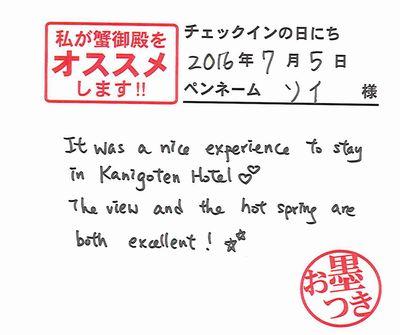 私が蟹御殿を
オススメ
します!!
チェックインの日にち
2016年7月5日
ペンネーム ソイ 様
It was a nice experience to stay
in Kanigoten Hotel♡♡
The view and the hot spring are
both excellent! ☆☆
お墨つき